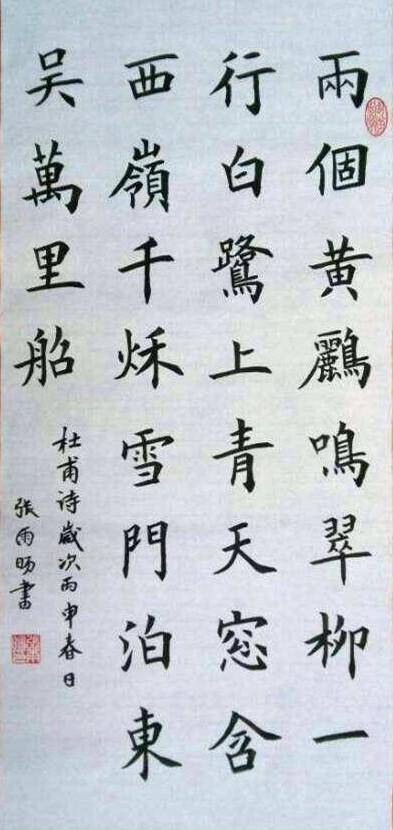 兩個黄鸝鳴翠柳一
行白鷺上青天窓含
西嶺千秌雪門泊東
吴萬里船
杜甫诗歲次丙申春日
張雨昞書